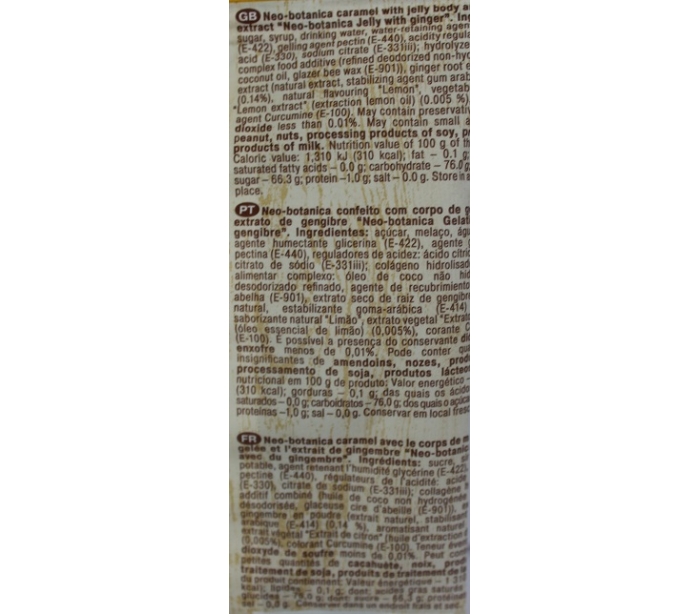 GB Neo-botanica caramel with jelly body
extract "Neo-botanica Jelly with ginger".
sugar, syrup, drinking water, water-retaining agen
(E-422), gelling agent pectin (E-440), acidity regula
acid (E-330), sodium citrate (E-331iii); hydrolyze
complex food additive (refined deodorized non-hyd
coconut oil, glazer bee wax (E-901)), ginger root e
extract (natural extract, stabilizing agent gum arab
(0.14%), natural flavouring "Lemon", vegetab
"Lemon extract" (extraction lemon oil) (0.005 %)
agent Curcumine (E-100). May contain preservativ
dioxide less than 0.01%. May contain small a
peanut, nuts, processing products of soy, p
products of milk. Nutrition value of 100 g of th
Caloric value: 1,310 kJ (310 kcal); fat – 0.1 g;
saturated fatty acids – 0.0 g; carbohydrate – 76.0 g
sugar – 66,3 g; protein –1,0 g; salt – 0.0 g. Store in a
place.
PT Neo-botanica confeito com corpo de g
extrato de gengibre "Neo-botanica Gelat
gengibre". Ingredientes: açúcar, melaço, águ
agente humectante glicerina (E-422), agente g
pectina (E-440), reguladores de acidez: ácido cítric
citrato de sódio (E-331iii); colágeno hidrolisad
alimentar complexo: óleo de coco não hid
desodorizado refinado, agente de recubrimiento
abelha (E-901), extrato seco de raiz de gengibre
natural, estabilizante goma-arábica (E-414)
saborizante natural "Limão", extrato vegetal "Extrat
(óleo essencial de limão) (0,005%), corante C
E-100). É possível a presença do conservante dió
enxofre menos de 0,01%. Pode conter qua
insignificantes de amendoins, nozes, prod
processamento de soja, produtos lácteo
nutricional em 100 g de produto: Valor energético –
(310 kcal); gorduras – 0,1 g; das quais os ácido
saturados – 0,0 g; carboidratos – 76,0 g; dos quais o açúca
proteínas –1,0 g; sal – 0,0 g. Conservar em local fresc
FR Neo-botanica caramel avec le corps de
gelée et l'extrait de gingembre "Neo-botan
avec du gingembre". Ingrédients: sucre,
potable, agent retenant l'humidité glycérine (E-422)
pectine (E-440), régulateurs de l'acidité: acide
(E-330), citrate de sodium (E-331iii); collagène
additif combiné (huile de coco non hydrogénée
désodorisée, glaceuse cire d'abeille (E-901)),
gingembre en poudre (extrait naturel, stabilisan
arabique (E-414) (0,14 %), aromatisant natur
extrait végétal "Extrait de citron" (huile d'extraction
(0,005%), colorant Curcumine (E-100). Teneur éven
dioxyde de soufre moins de 0,01%. Peut cont
petites quantités de cacahuète, noix,
traitement de soja, produits de traitement de
du produit contiennent: Valeur énergétique –
lipides – 0,1 g; dont: acides gras
glucides – 76,0 g; dont: sucre – 66,3 g;
– 0,0 g. Conserver en lieu frais et